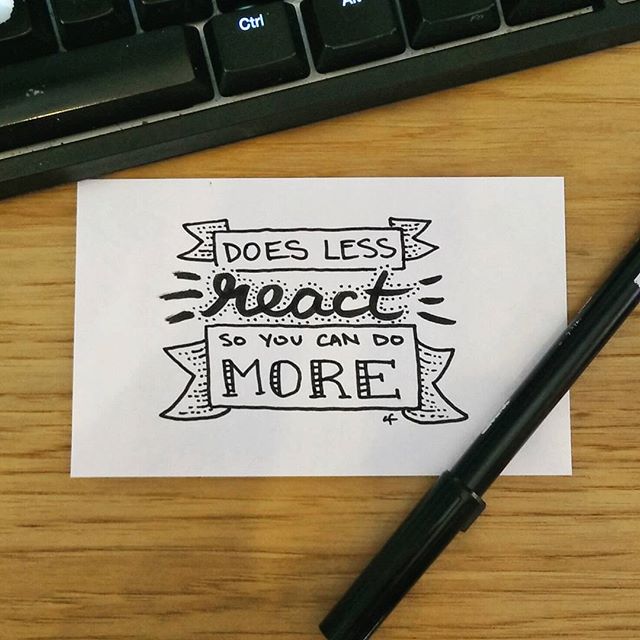 Ctrl
Alt
DOES LESS
react
SO YOU CAN DO
MORE